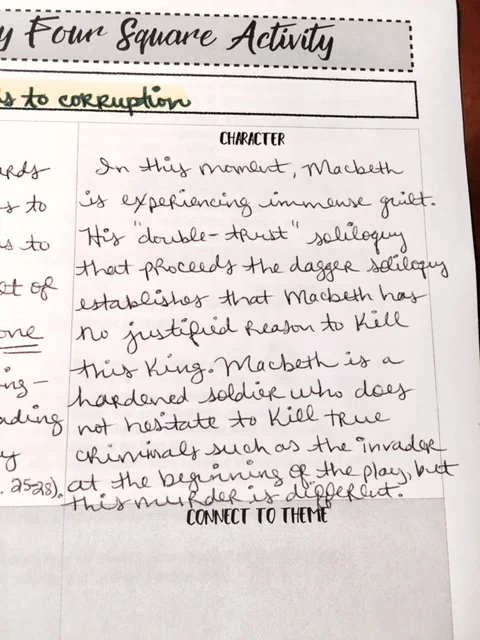 y Four Square Activity
s to corruption
CHARACTER
In this moment, Macbeth
is experiencing immense guilt.
His "double-trust" soliloquy
that proceeds the dagger soliloquy
establishes that Macbeth has
no justified reason to kill
this King. Macbeth is a
hardened soldier who does
not hesitate to kill true
criminals such as the invader
at the beginning of the play, but
this murder is different.
CONNECT TO THEME
s to
s to
of
one
ing-
ading
y
. 25-28).